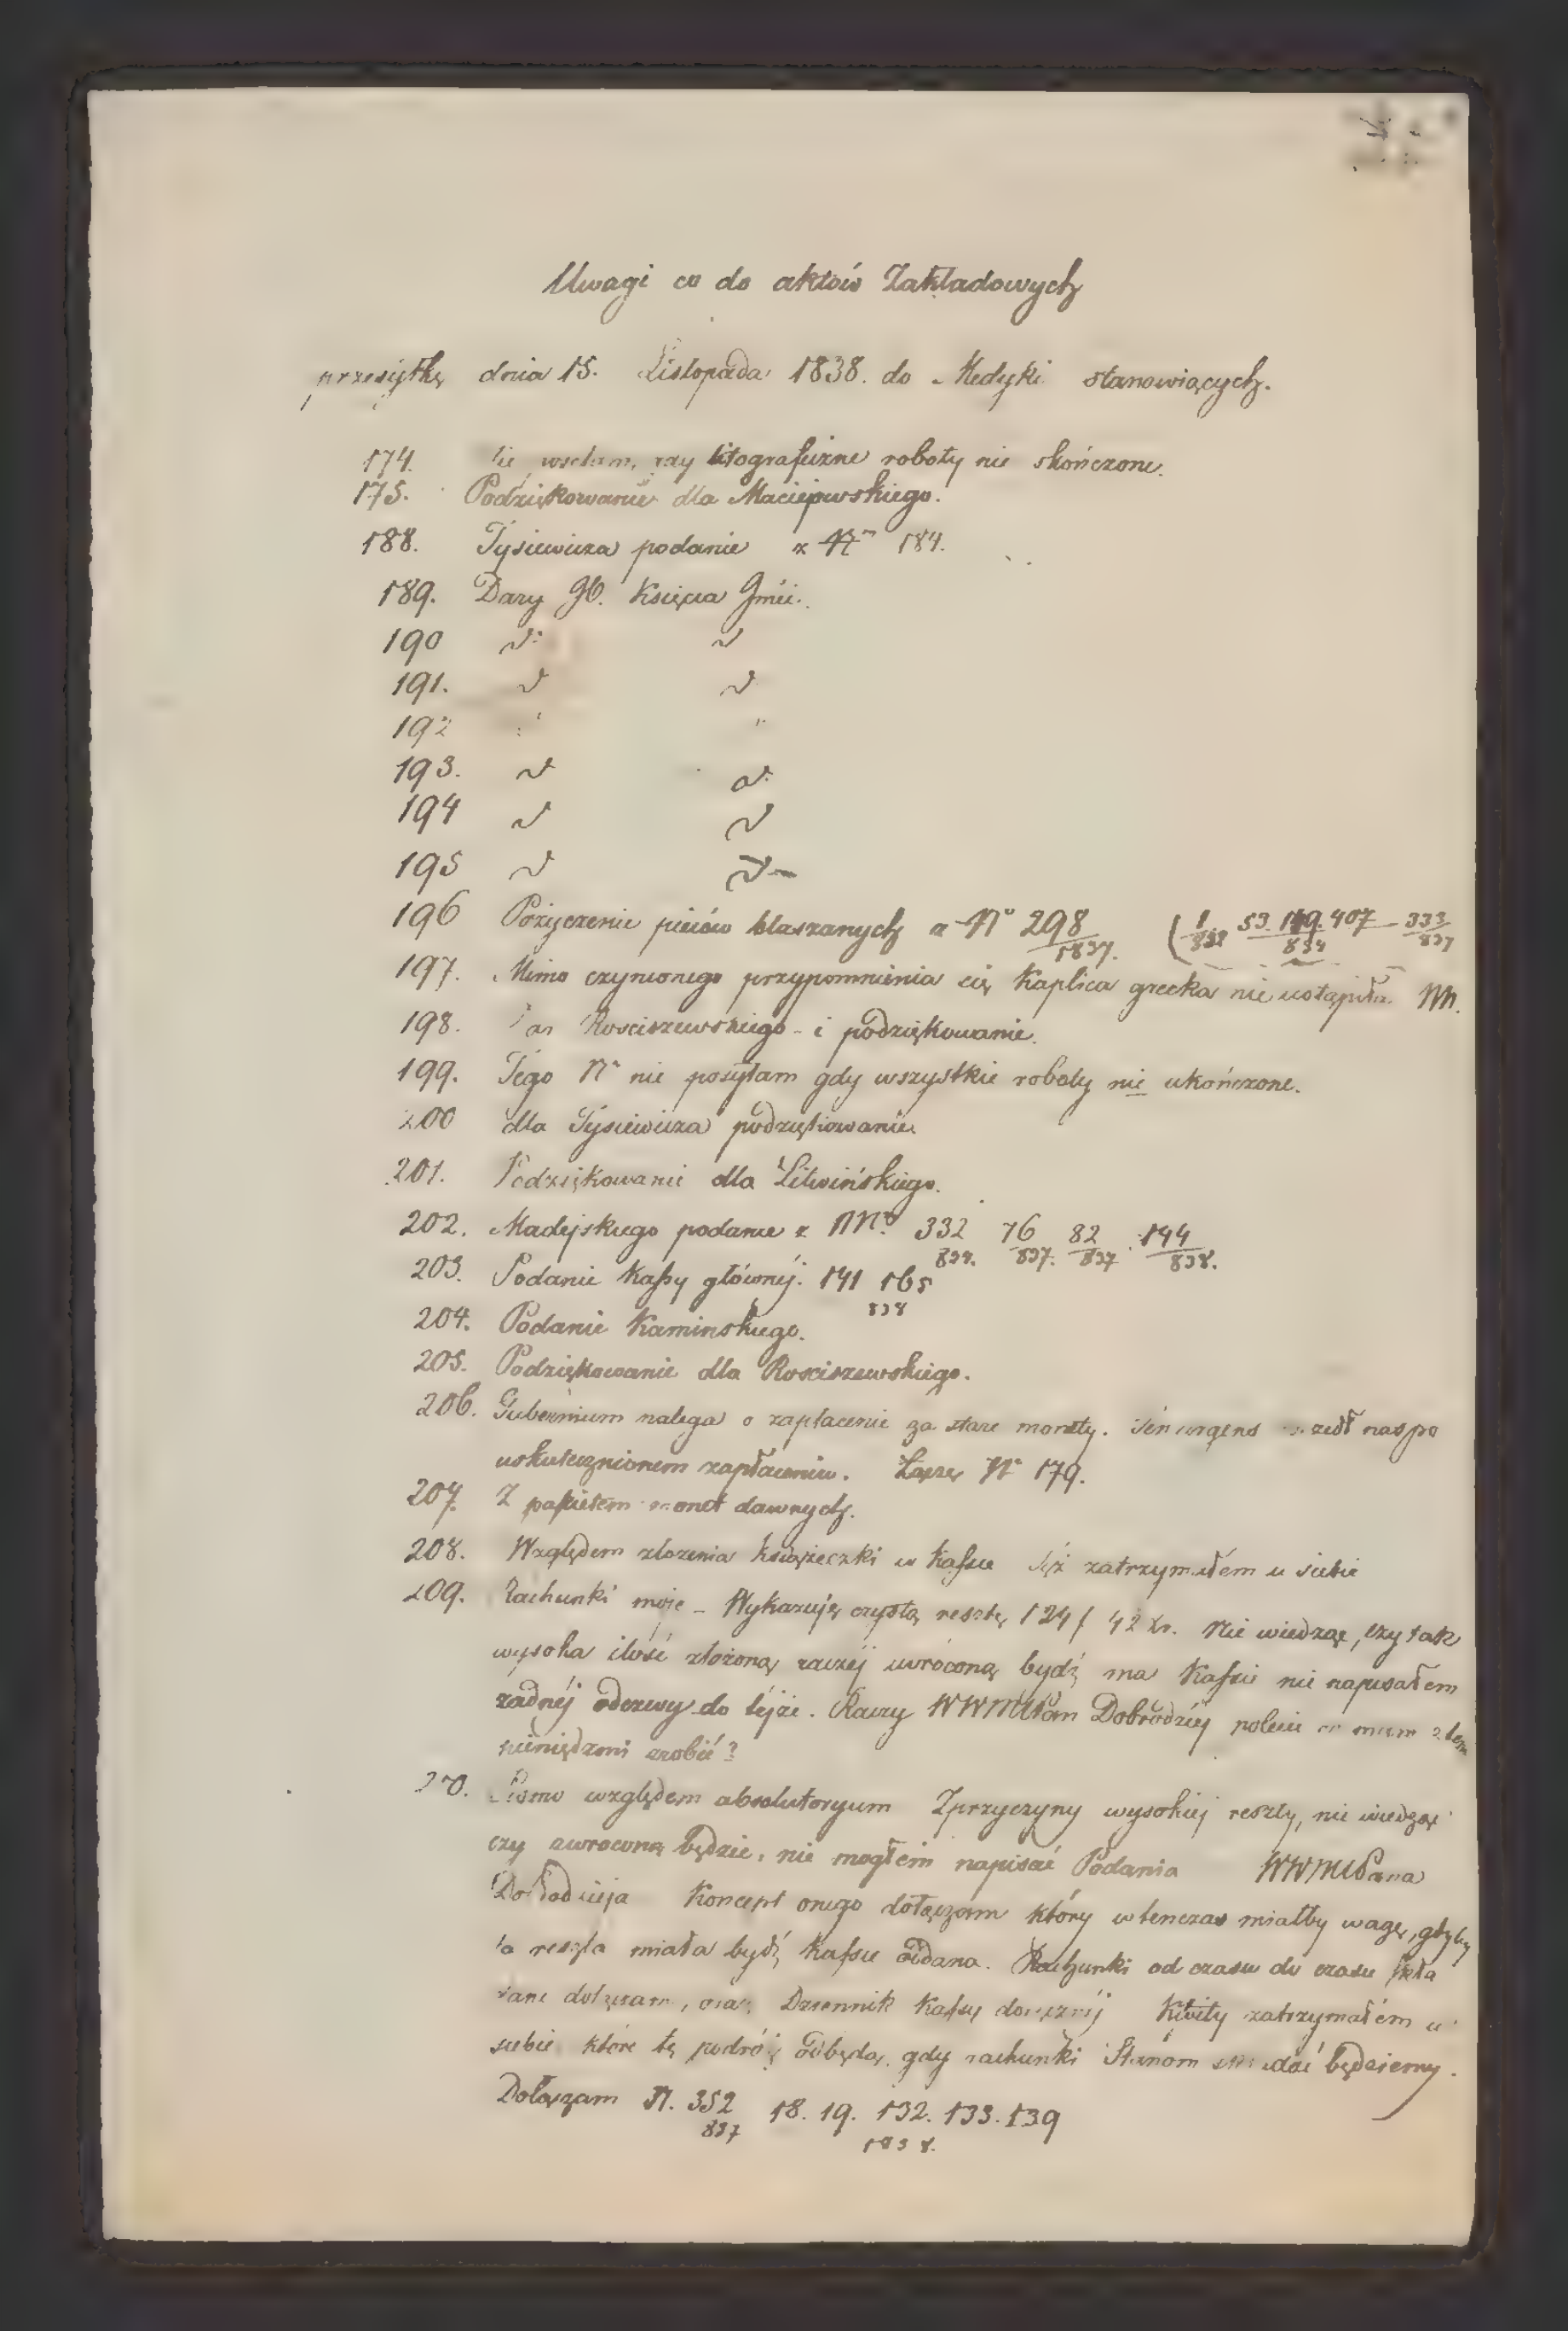 Uwagi co do aktów Zakładowych
przesyłkę dnia 15. Listopada 1838. do Medyki stanowiących.
174. gdy litograficzne roboty nie skończone.
175. Podziękowanie dla Maciejowskiego.
188. Tysiewicza podanie z Nr 184.
189. Dary Księcia
190
191.
192
193.
194
195
196 Pożyczenie pieców blaszanych a No 298/1837. (1/838 53. 149. 407/834 333/837
197. Mimo czynionego przypomnienia się Kaplica grecka nie ustąpiła
198. Rościszewskiego - i podziękowanie.
199. Tego No nie posyłam gdy wszystkie roboty nie ukończone.
200 dla Tysiewicza podziękowanie
201. Podziękowanie dla Litwińskiego.
202. Madejskiego podanie z NNro 332/834. 76/837. 82/837 144/838.
203. Podanie Kassy głównéj. 141 165/838
204. Podanie Kaminskiego.
205. Podziękowanie dla Rosciszewskiego.
206. Gubernium nalega o zapłacenie za stare monety. Ten urgens naspo
uskutecznionem zapłaceniu. Łączę Nr 179.
207. Z pakietem monet dawnych.
208. Względem złożenia książeczki w Kassie zatrzymałem u siebie
209. Rachunki moje - Wykazuję czystą resztę 124 f 42 xr. Nie wiedząc, czy tak
wysoka ilość złożoną raczéj uwróconą bydź ma Kassie nie napisałem
żadnéj odezwy do téjże. Raczy WWMCPan Dobrodziéj polecić co mam z tem
pieniędzmi zrobić?
210. Pismo względem absolutoryum Zprzyczyny wysokiéj reszty, nie wiedząc
czy zwroconą będzie, nie mogłem napisać Podania WWMCPana
Dobrodzieja Koncept onego dołączam który wtenczas miałby wagę, gdyby
ta reszta miała bydź Kassie oddana. Rachunki od czasu do czasu skła
dane dołączam, oraz Dziennik Kassy doręcznéj Kwity zatrzymałém u
siebie które tę podróż odbędą, gdy rachunki Stanom składać będziemy.
Dołączam N. 352/837 18. 19. 132. 133. 139/1838.